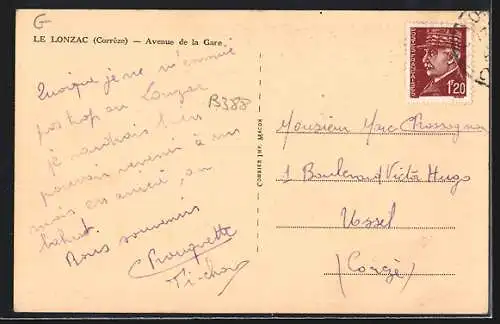 G
LE LONZAC (Corrèze) — Avenue de la Gare.
Quoique je ne m'ennuie
pas trop au Lonzac
je voudrais bien
pouvoir revenir à
mois
bahut.
Bons souvenirs
Rouquette
B388
COMBIER IMP. MACON
1F20
Monsieur Marc
1 Boulevard Victor Hugo
Ussel
(Corrèze)